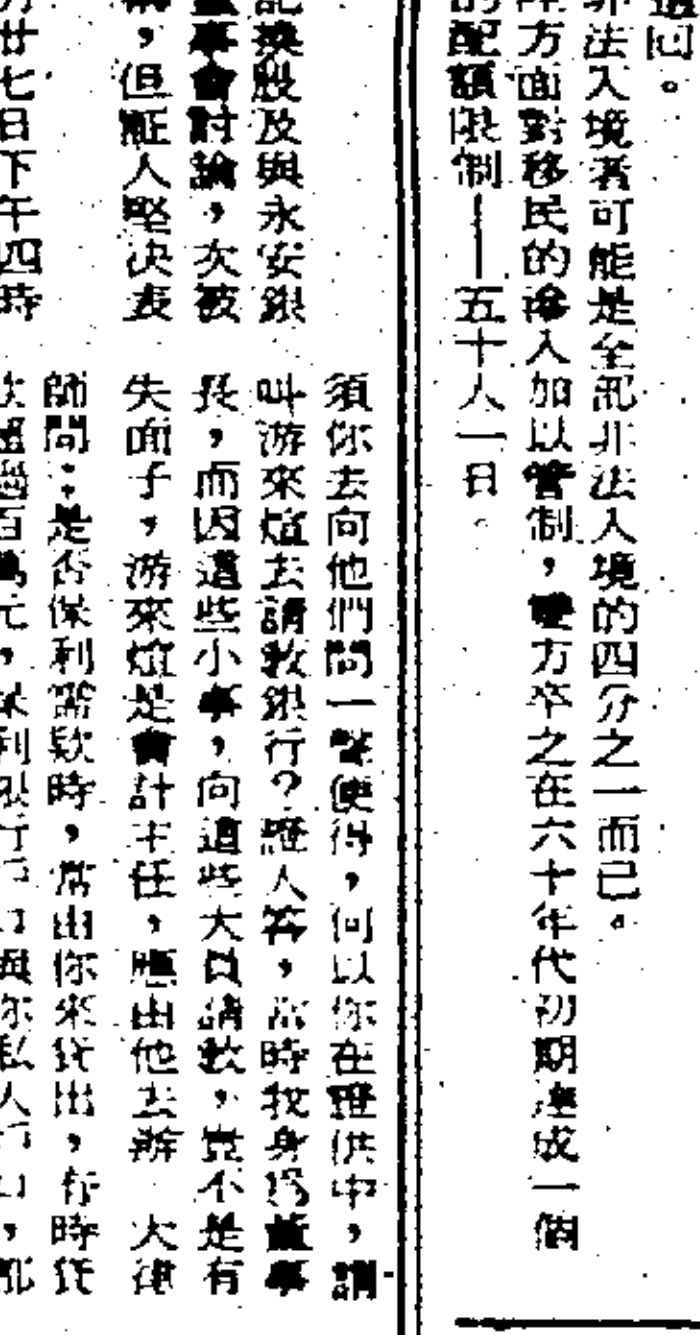 遣回。
非法入境者可能是全部非法入境的四分之一而已。
方面對移民的滲入加以管制，雙方卒之在六十年代初期達成一個
的配額限制——五十人一日。
須你去向他們問一聲便得，何以你在證供中，謂
叫游來烜去請教銀行？證人答，當時我身爲董事
長，而因這些小事，向這些大員請教，豈不是有
失面子，游來烜是會計主任，應由他去辦　大律
師問：是否保利需欵時，常由你來貸出，有時貸
欵超過百萬元，保利銀行戶口與你私人戶口，都
記換股及與永安銀
董事會討論，次被
，但証人堅決表
月廿七日下午四時